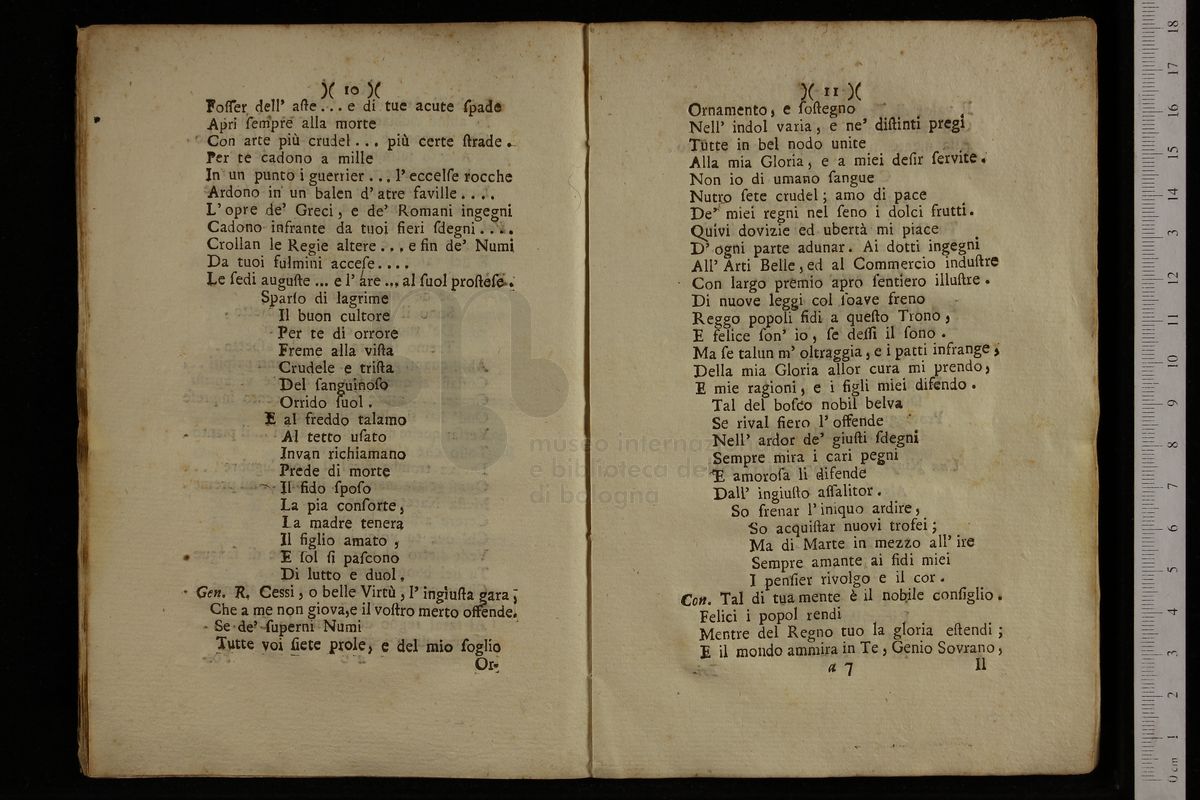 )( 10 )(
Foſſer dell' aſte... e di tue acute ſpade
Apri ſempre alla morte
Con arte più crudel... più certe ſtrade.
Per te cadono a mille
In un punto i guerrier... l' eccelſe rocche
Ardono in un balen d' atre faville....
L' opre de' Greci, e de' Romani ingegni
Cadono infrante da tuoi fieri ſdegni....
Crollan le Regie altere... e fin de' Numi
Da tuoi fulmini acceſe....
Le ſedi auguſte... e l' are... al ſuol proſteſe.
Sparſo di lagrime
Il buon cultore
Per te di orrore
Freme alla viſta
Crudele e triſta
Del ſanguinoſo
Orrido ſuol.
E al freddo talamo
Al tetto uſato
Invan richiamano
Prede di morte
Il fido ſpoſo
La pia conſorte,
La madre tenera
Il figlio amato,
E ſol ſi paſcono
Di lutto e duol.
Gen. R. Ceſſi, o belle Virtù, l' ingiuſta gara;
Che a me non giova, e il voſtro merto offende.
Se de' ſuperni Numi
Tutte voi ſiete prole, e del mio ſoglio
Or-
)( 11 )(
Ornamento, e ſoſtegno
Nell' indol varia, e ne' diſtinti pregi
Tutte in bel nodo unite
Alla mia Gloria, e a miei deſir ſervite.
Non io di umano ſangue
Nutro ſete crudel; amo di pace
De' miei regni nel ſeno i dolci frutti.
Quivi dovizie ed ubertà mi piace
D' ogni parte adunar. Ai dotti ingegni
All' Arti Belle, ed al Commercio induſtre
Con largo premio apro ſentiero illuſtre.
Di nuove leggi col ſoave freno
Reggo popoli fidi a queſto Trono,
E felice ſon' io, ſe deſſi il ſono.
Ma ſe talun m' oltraggia, e i patti infrange,
Della mia Gloria allor cura mi prendo,
E mie ragioni, e i figli miei difendo.
Tal del boſco nobil belva
Se rival fiero l' offende
Nell' ardor de' giuſti ſdegni
Sempre mira i cari pegni
E amoroſa li difende
Dall' ingiuſto aſſalitor.
So frenar l' iniquo ardire,
So acquiſtar nuovi trofei;
Ma di Marte in mezzo all' ire
Sempre amante ai fidi miei
I penſier rivolgo e il cor.
Con. Tal di tua mente è il nobile conſiglio.
Felici i popol rendi
Mentre del Regno tuo la gloria eſtendi;
E il mondo ammira in Te, Genio Sovrano,
a 7 Il
museo internaz
e biblioteca del
di bologna
0 cm 1 2 3 4 5 6 7 8 9 10 11 12 13 14 15 16 17 18